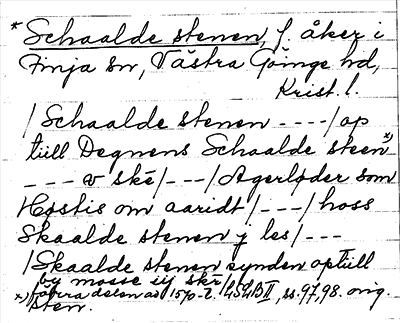 * Schaalde stenen, f. åker i
Finja sn, Västra Göinge hd,
Krist. l.
/Schaalde stenen ----/op
tiill Degnens Schaalde steen x)
--- v ské/---/Agerløder som
Høstis om aaridt/---/hoss
Skaalde stenen j les/---
/Skaalde stenen synden optiill
by mosse iij skr
x) övra delen av 1570-t. LSLB II, ss. 97, 98. orig.
sten.